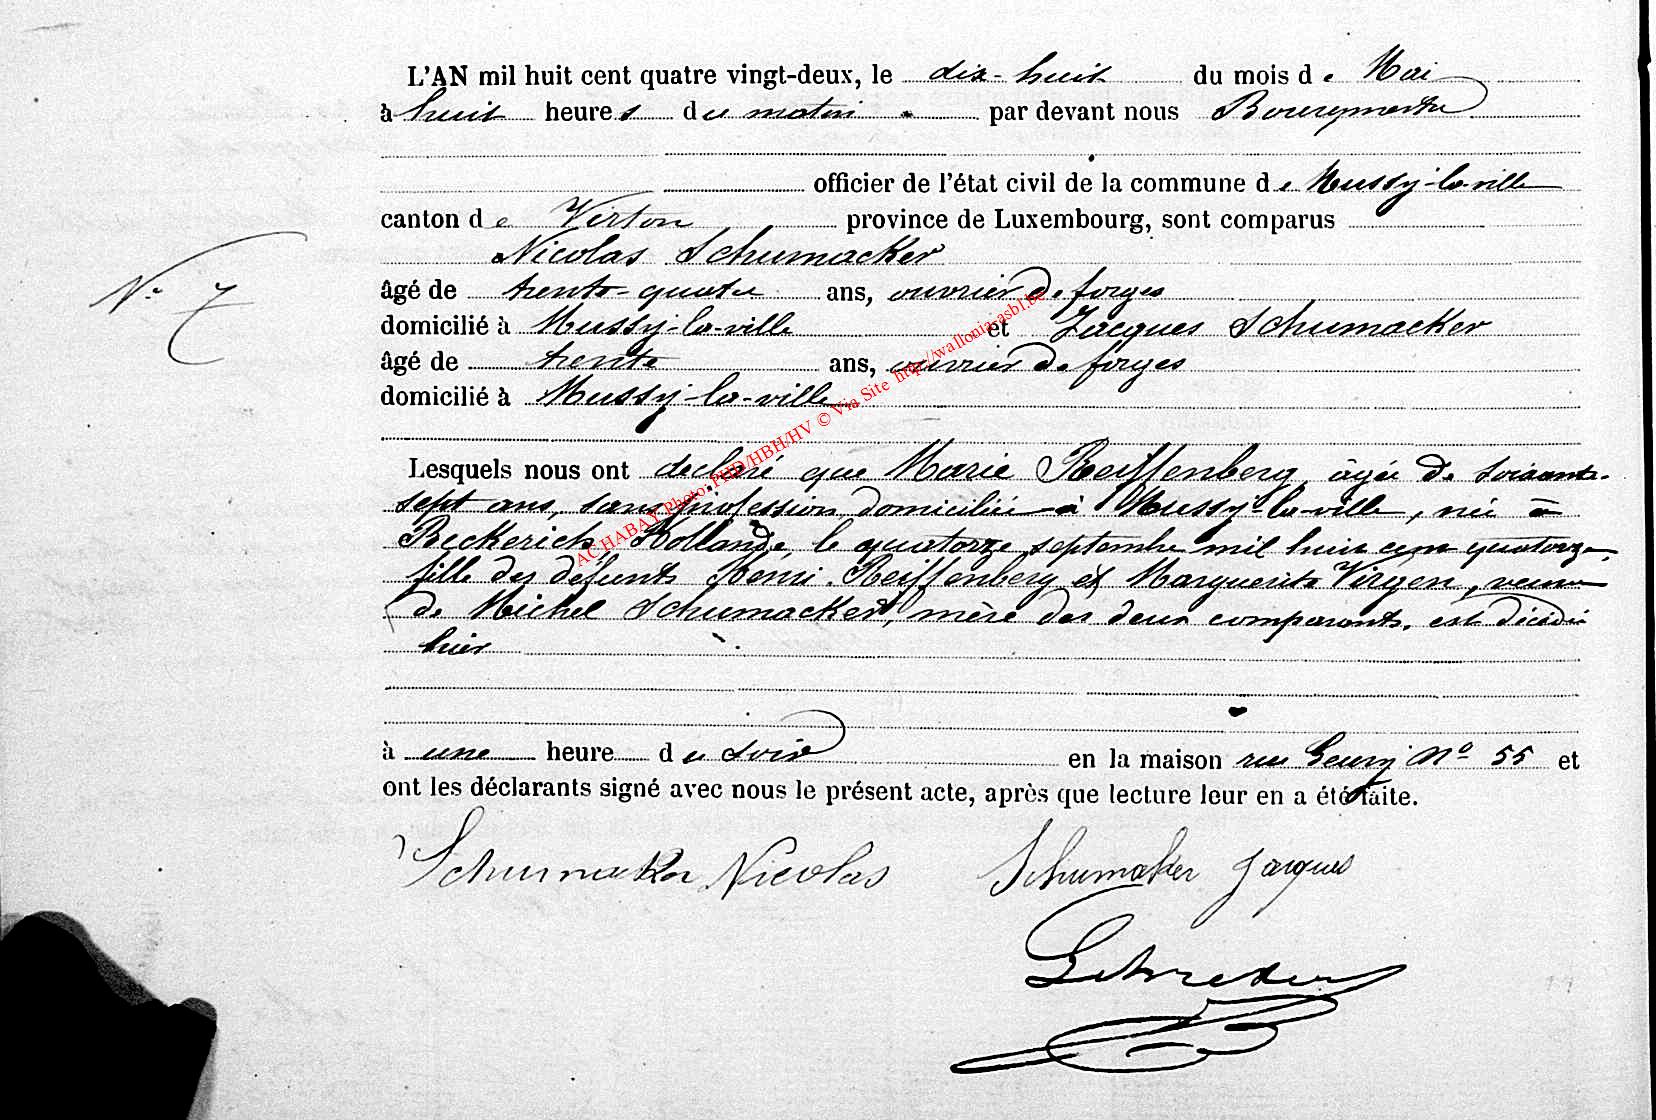 L'AN mil huit cent quatre vingt-deux, le dix-huit du mois de Mai
à huit heures du matin par devant nous Bourgmestre
officier de l'état civil de la commune de Mussy-la-ville
canton de Virton province de Luxembourg, sont comparus
Nicolas Schumacker
âgé de trente-quatre ans, ouvrier de forges
domicilié à Mussy-la-ville et Jacques Schumacker
âgé de trente ans, ouvrier de forges
domicilié à Mussy-la-ville
N° 7
Lesquels nous ont déclaré que Marie Reiffenberg, âgée de soixante-
sept ans, sans profession, domiciliée à Mussy-la-ville, née à
Beckerich, Hollande, le quatorze septembre mil huit cent quatorze
fille des défunts Henri Reiffenberg et Marguerite Virgen, veuve
de Michel Schumacker, mère des deux comparants, est décédée
hier
à une heure du soir en la maison rue N° 55 et
ont les déclarants signé avec nous le présent acte, après que lecture leur en a été faite.
Schumaker Nicolas Schumaker Jacques
ACHABAY Photo: PHD/HBH/HV © Via Site http://wallonia-asbl.be